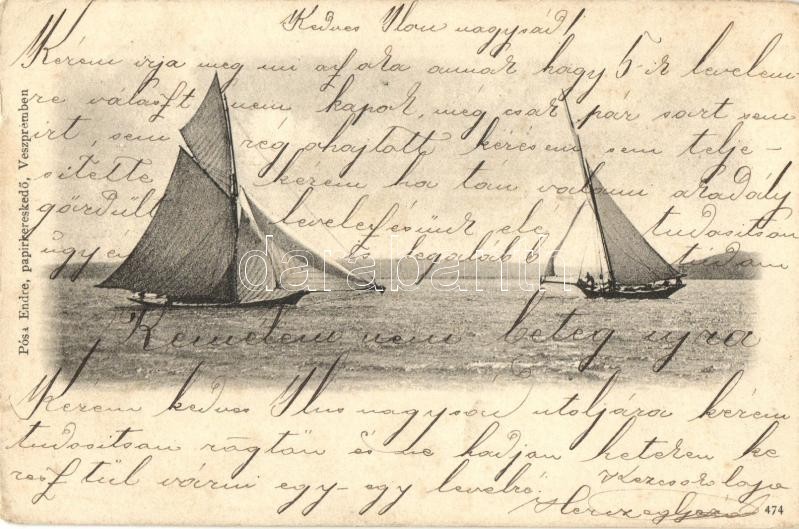 Kedves Ilon nagysád!
Kérem irja meg mi af oka annak hogy 5-ik levelem
re választ nem kapok, még csak pár sort sem
irt, sem rég ohajtott kérésem sem telje-
sitette kérem ha tán valami akadály
gördült levelezésünk elé tudositson
ugy én is legalább tudom
Remélem nem beteg ujra
Kérem kedves Ilus nagysád utoljára kérem
tudositson rögtön és ne hadjon heteken ke
resztül várni egy-egy levelre.
Kezcsokloja
Pósa Endre, papirkereskedő, Veszprémben
474
darabanth